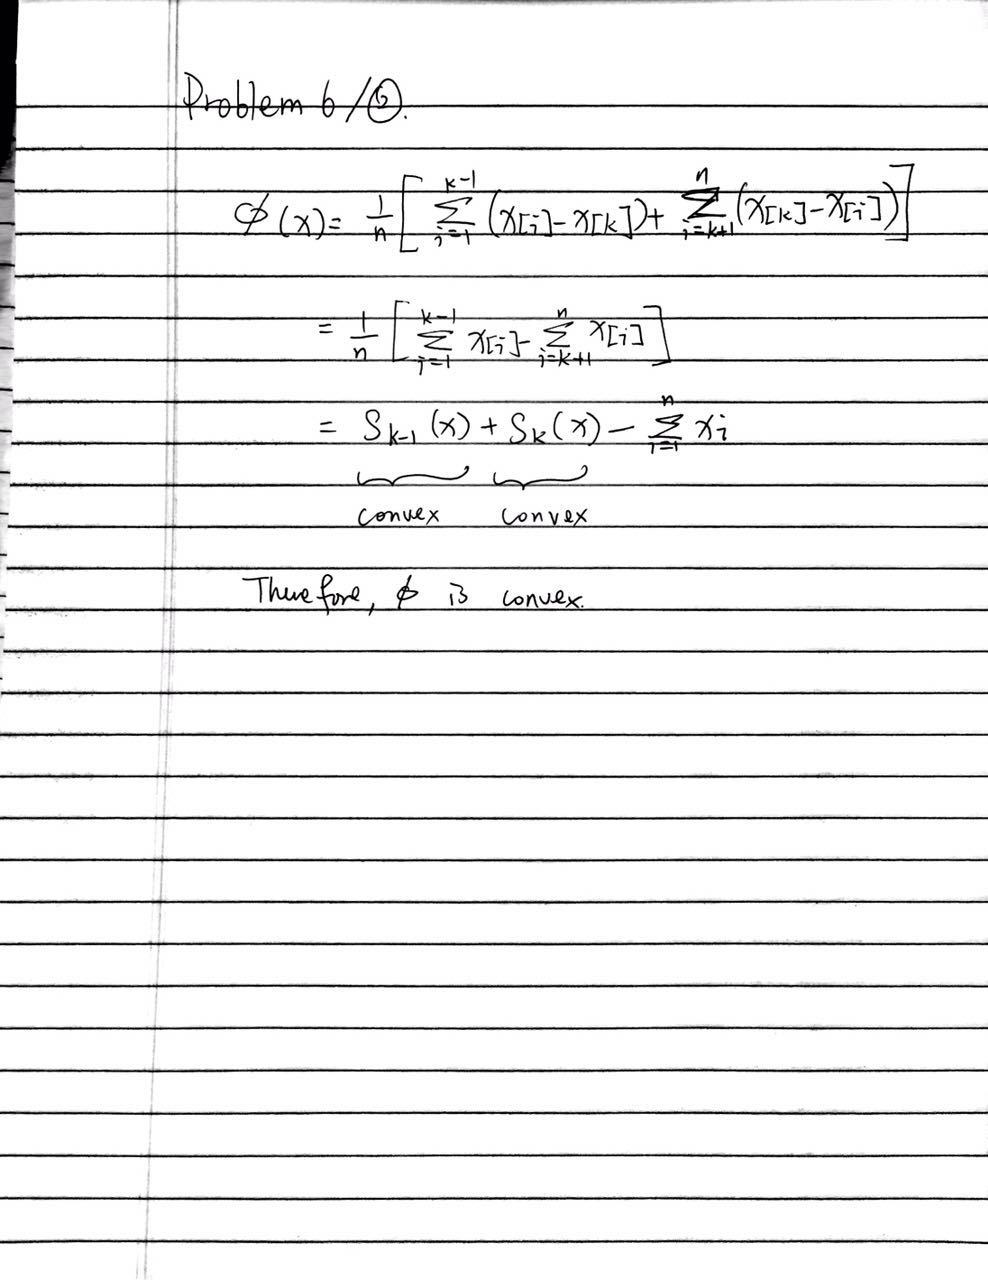 Problem 6/⑥.
ϕ(x) = 1/n [ ∑_{i=1}^{k-1} (x[i] - x[k]) + ∑_{i=k+1}^{n} (x[k] - x[i]) ]
= 1/n [ ∑_{i=1}^{k-1} x[i] - ∑_{i=k+1}^{n} x[i] ]
= S_{k-1}(x) + S_k(x) - ∑_{i=1}^{n} x_i
convex convex
Therefore, ϕ is convex.